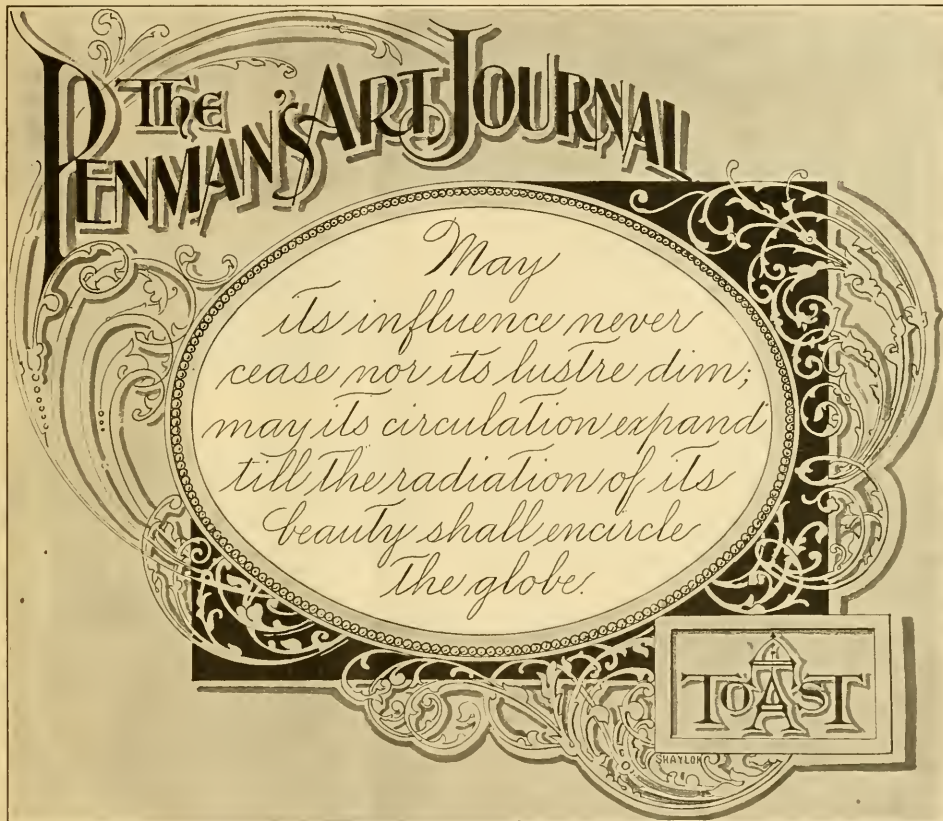 The
Penman's Art Journal
May
its influence never
cease nor its lustre dim;
may its circulation expand
till the radiation of its
beauty shall encircle
the globe.
A
Toast
Shaylor